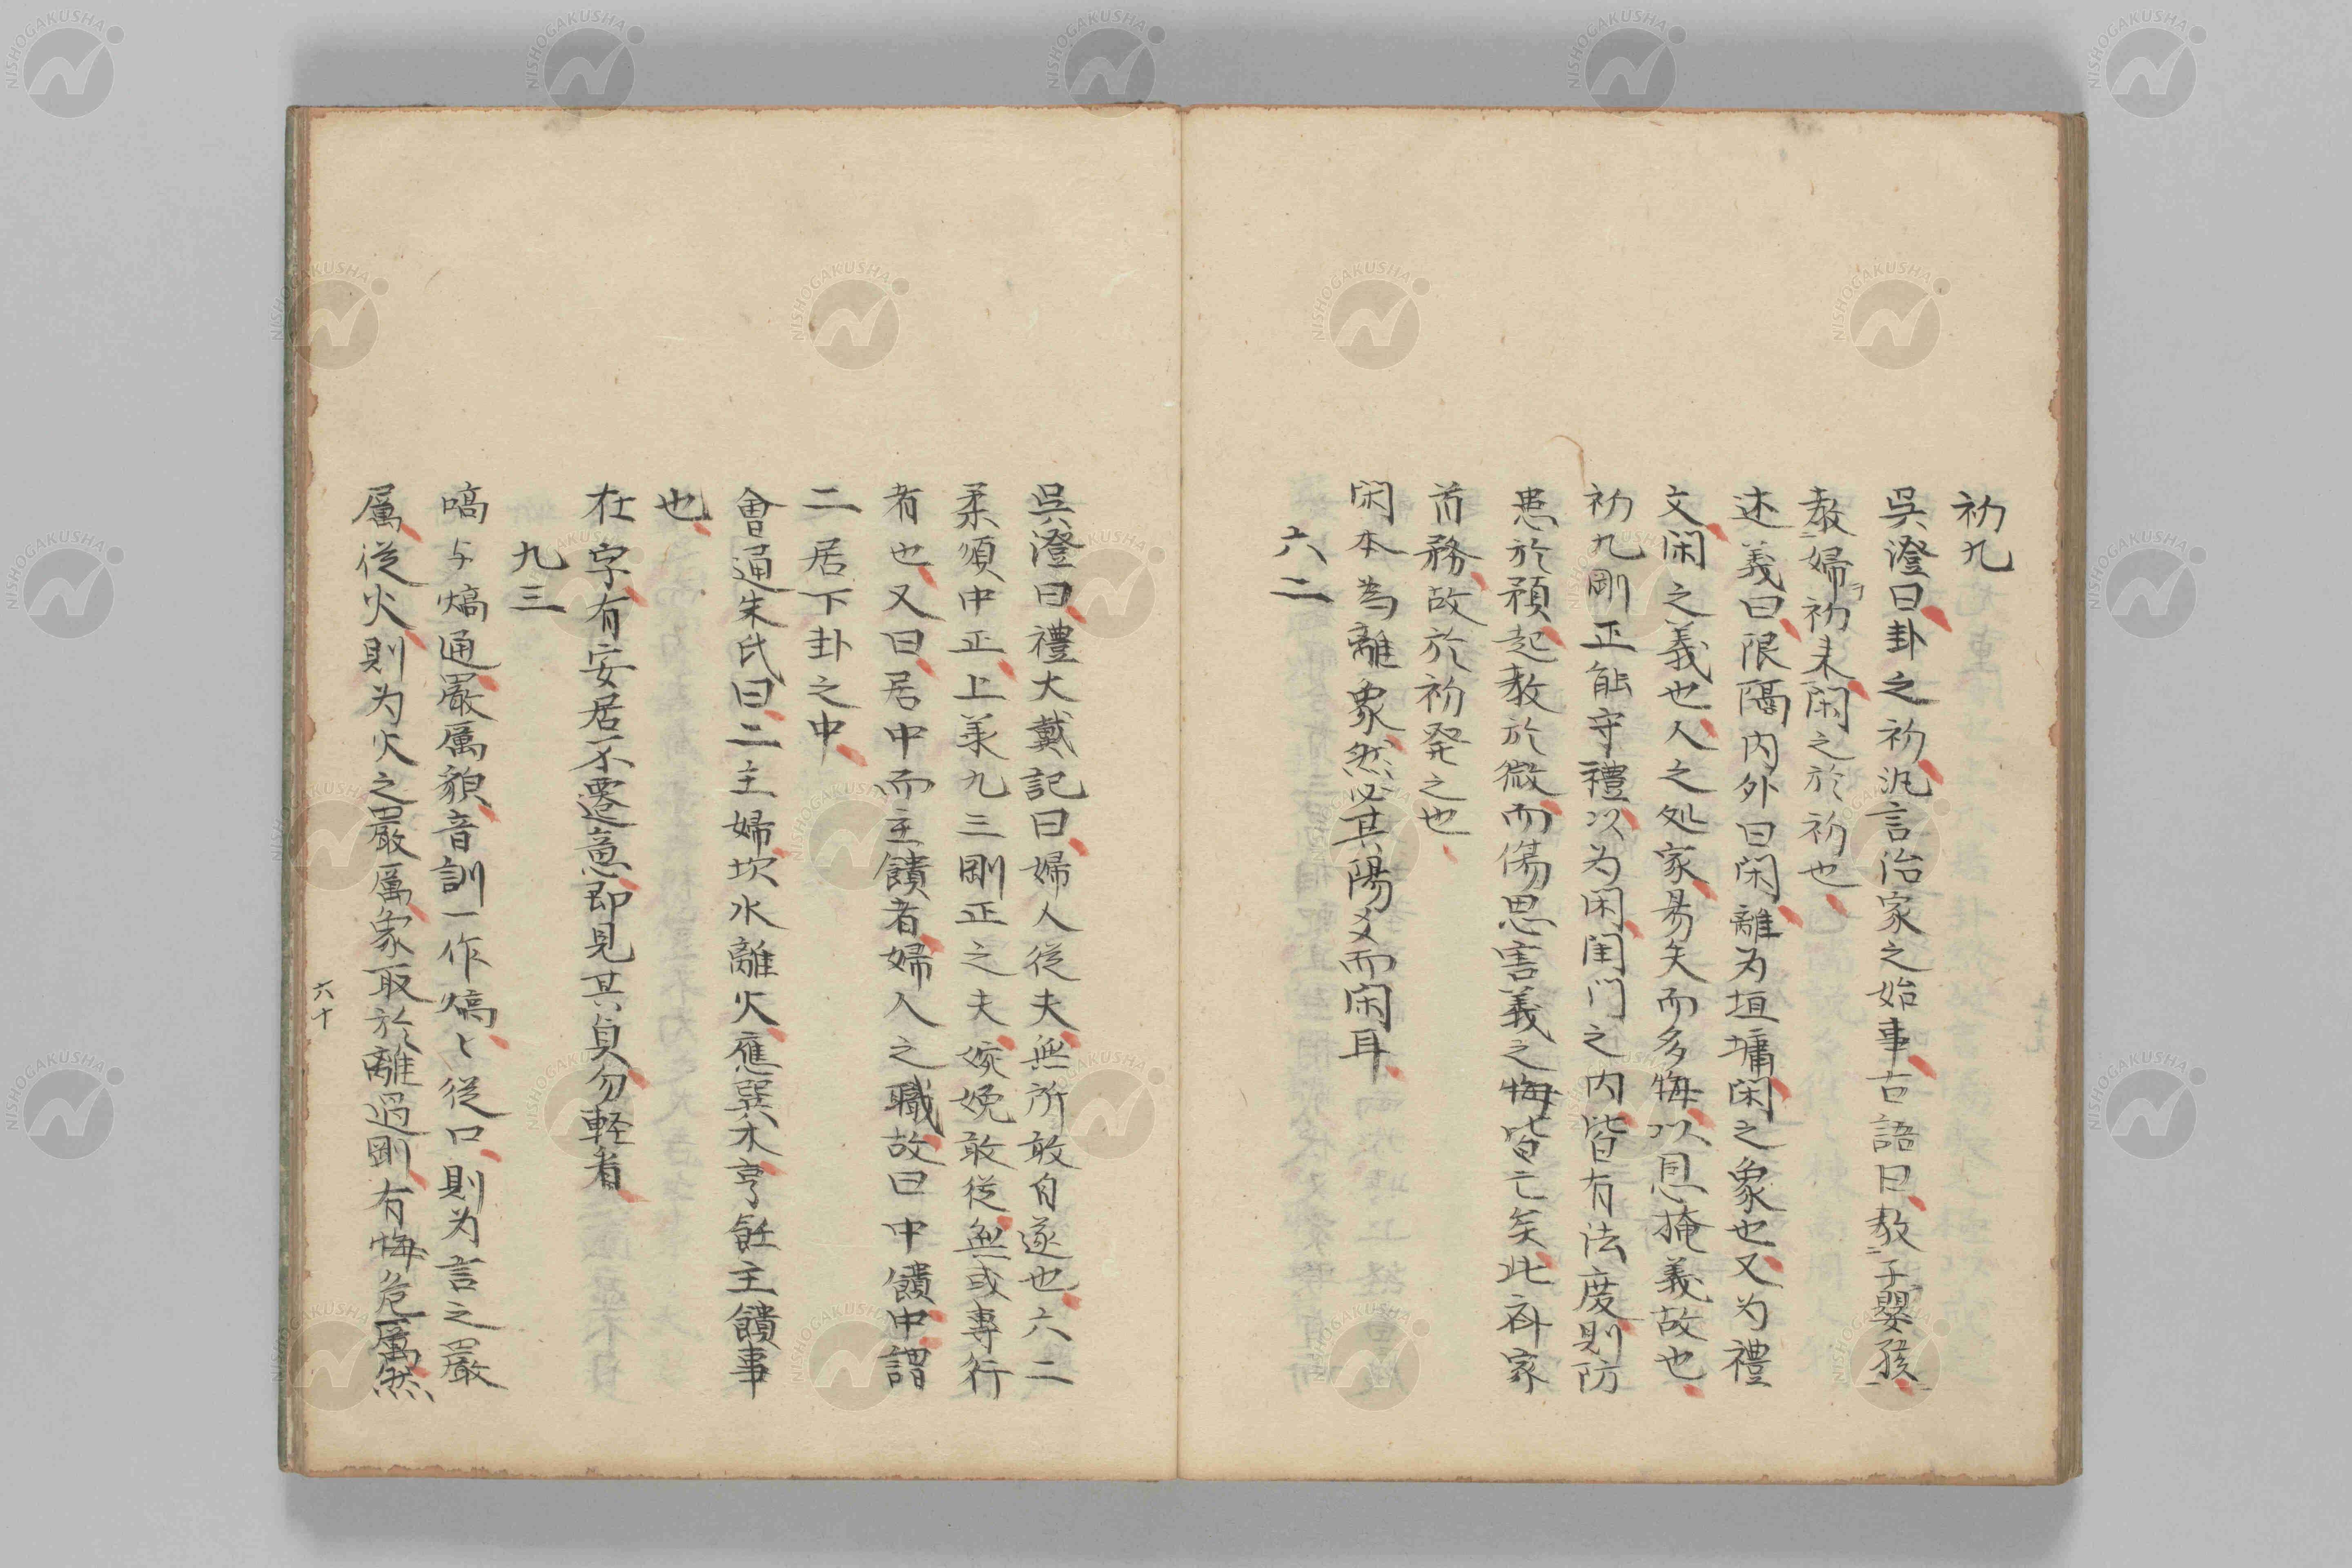 初九
吳澄曰卦之初汎言治家之始事古語曰教子嬰孩
教婦初来閑之於初也
述義曰限隔内外曰閑離为垣墉閑之象也又为禮
文閑之義也人之処家易矣而多悔以恩掩義故也
初九剛正能守禮以为閑閨门之内皆有法度則防
患於預起教於微而傷恩害義之悔皆亡矣此斉家
首務故於初発之也
閑本為離象然必其陽爻而閑耳
六二
吳澄曰禮大戴記曰婦人從夫無所敢自遂也六二
柔須中正上羕九三剛正之夫婉娩敢従無或專行
者也又曰居中而主饋者婦人之職故曰中饋中謂
二居下卦之中
會通朱氏曰二主婦坎水離火應巽木亨飪主饋事
也
在字有安居不遷意即見其貞勿軽看
九三
嗃与熇通嚴厲貌音訓一作熇〻從口則为言之嚴
厲從火則为火之嚴厲象取於離過剛有悔危厲然
六十
NISHOGAKUSHA